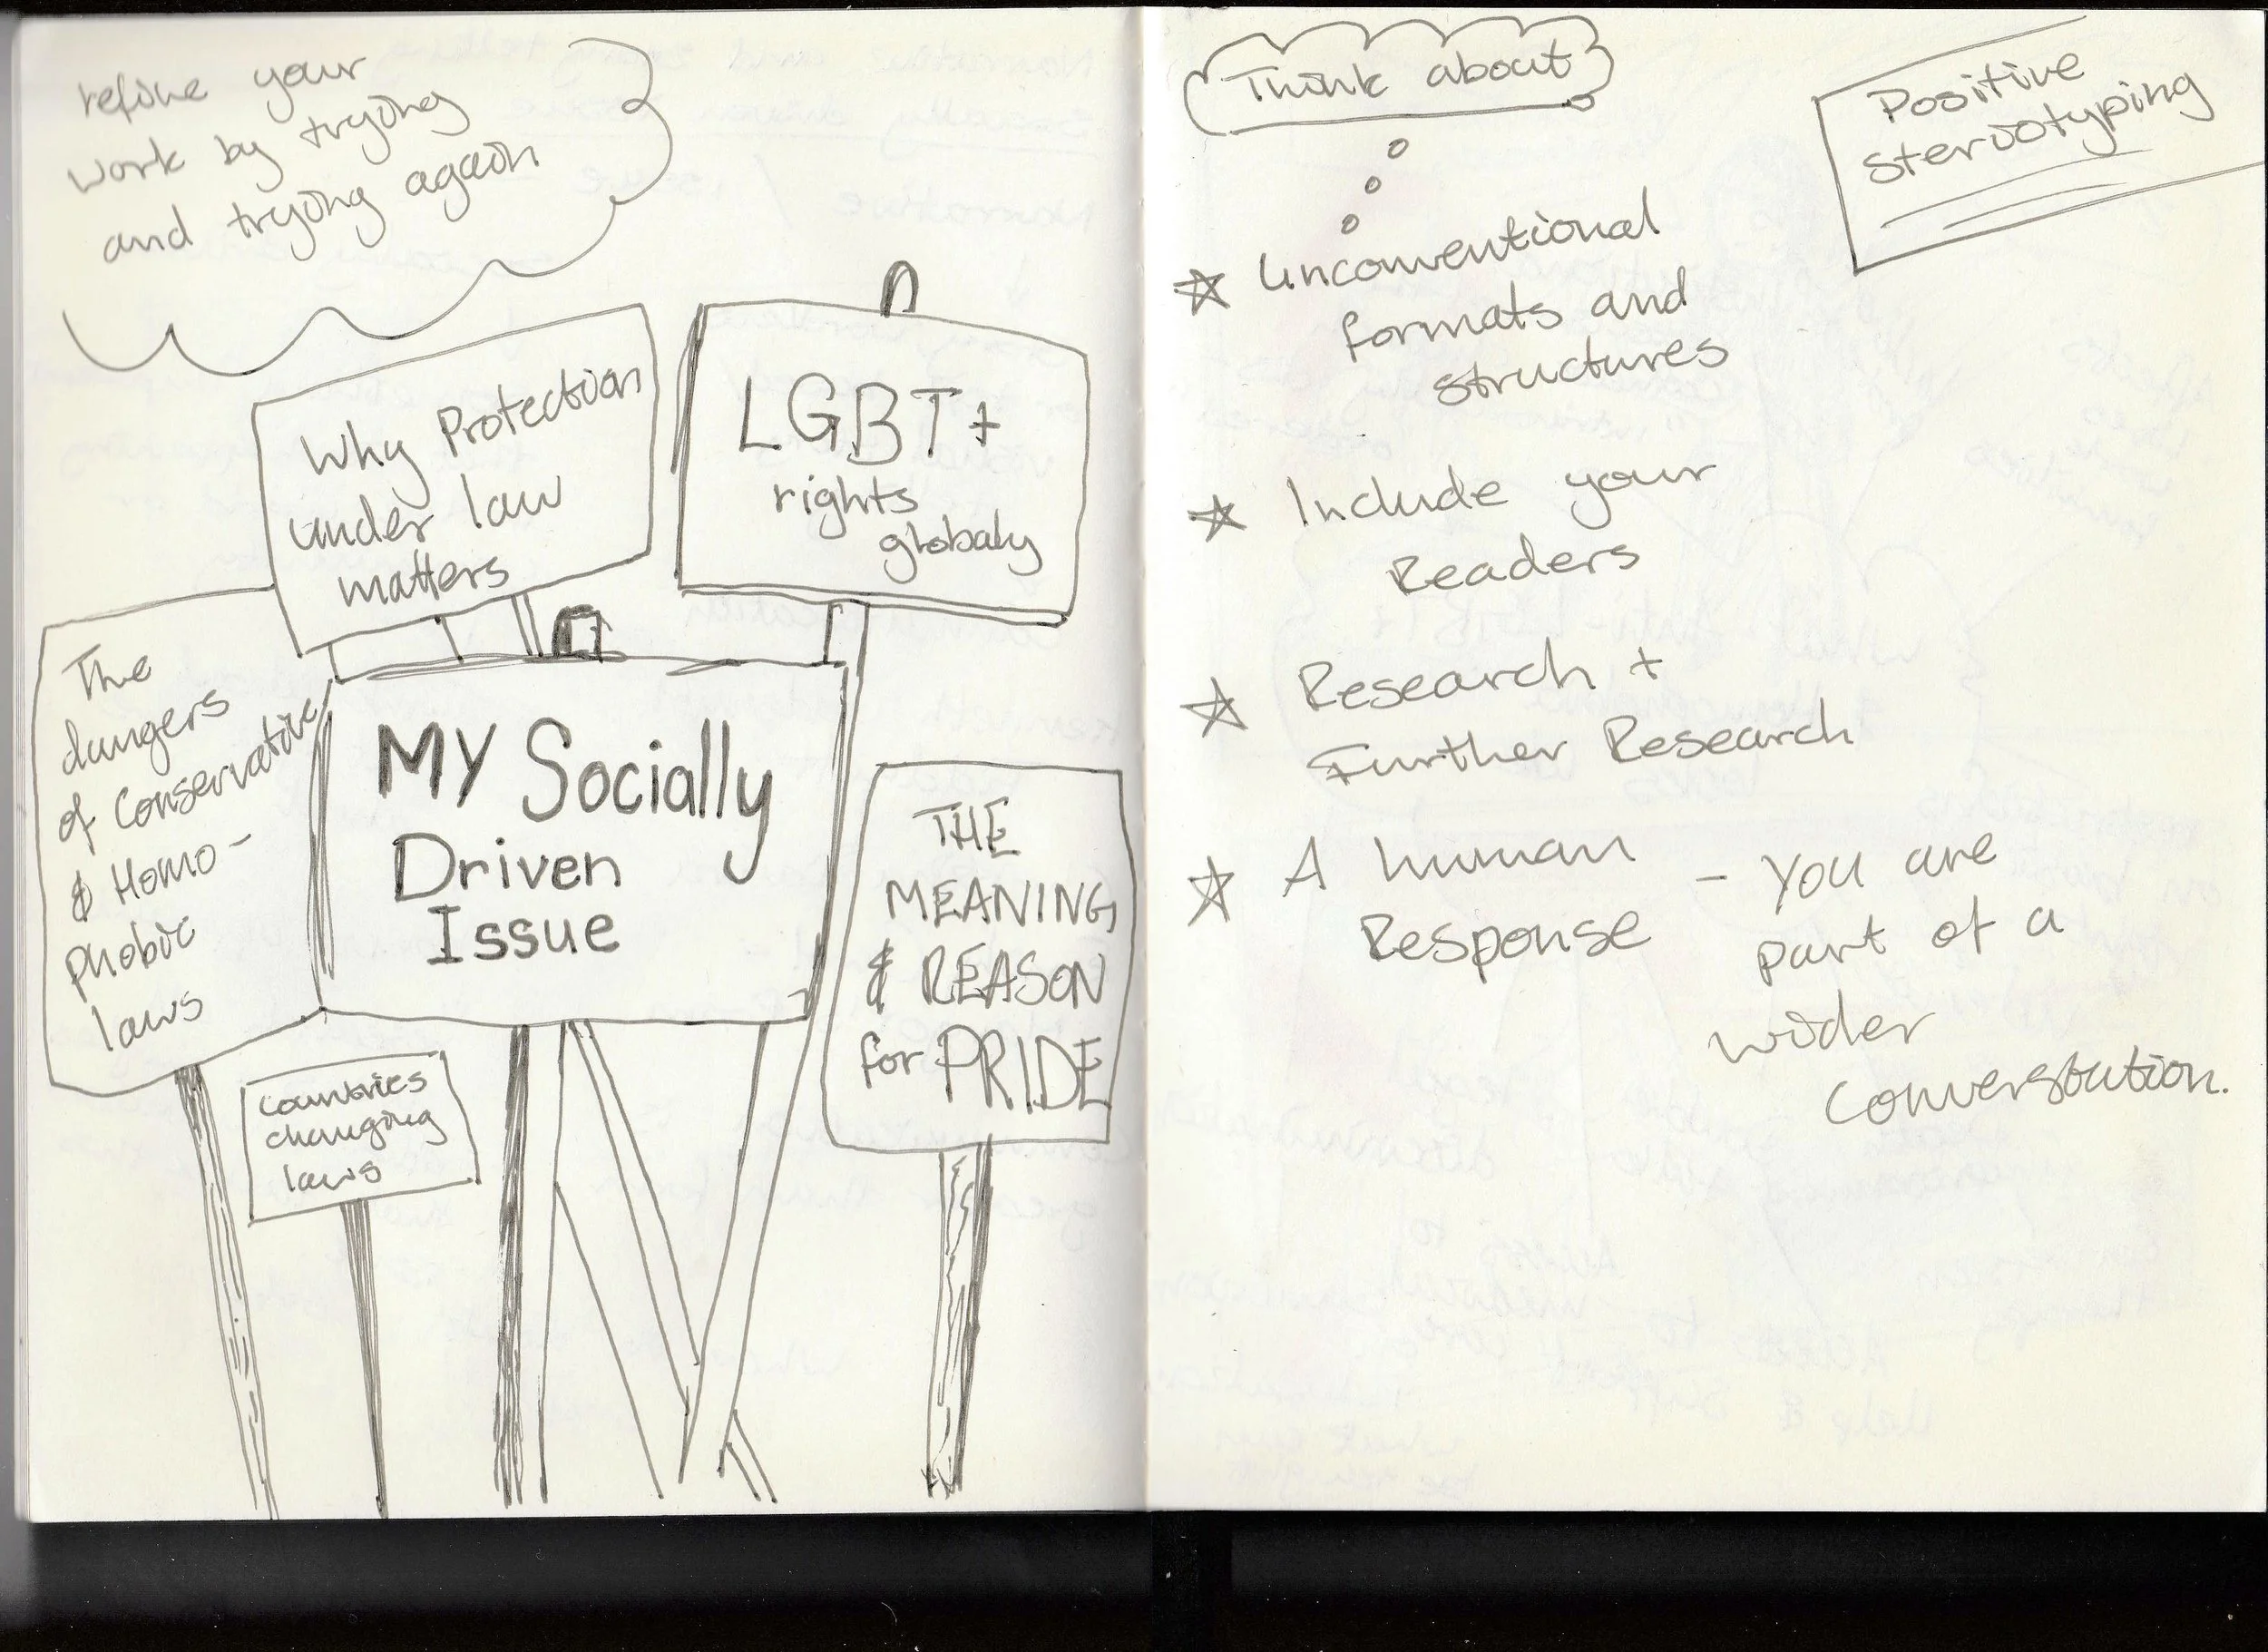 refine your
work by trying
and trying again
Why Protection
under law
matters
LGBT+
rights
globaly
The
dangers
of Conservative
& Homo-
phobic
laws
MY Socially
Driven
Issue
THE
MEANING
& REASON
for PRIDE
Countries
changing
laws
Think about
Positive
sterotyping
☆ Unconventional
formats and
structures
☆ Include your
Readers
☆ Research +
Further Research
☆ A human
Response
- You are
part of a
wider
Converstation.